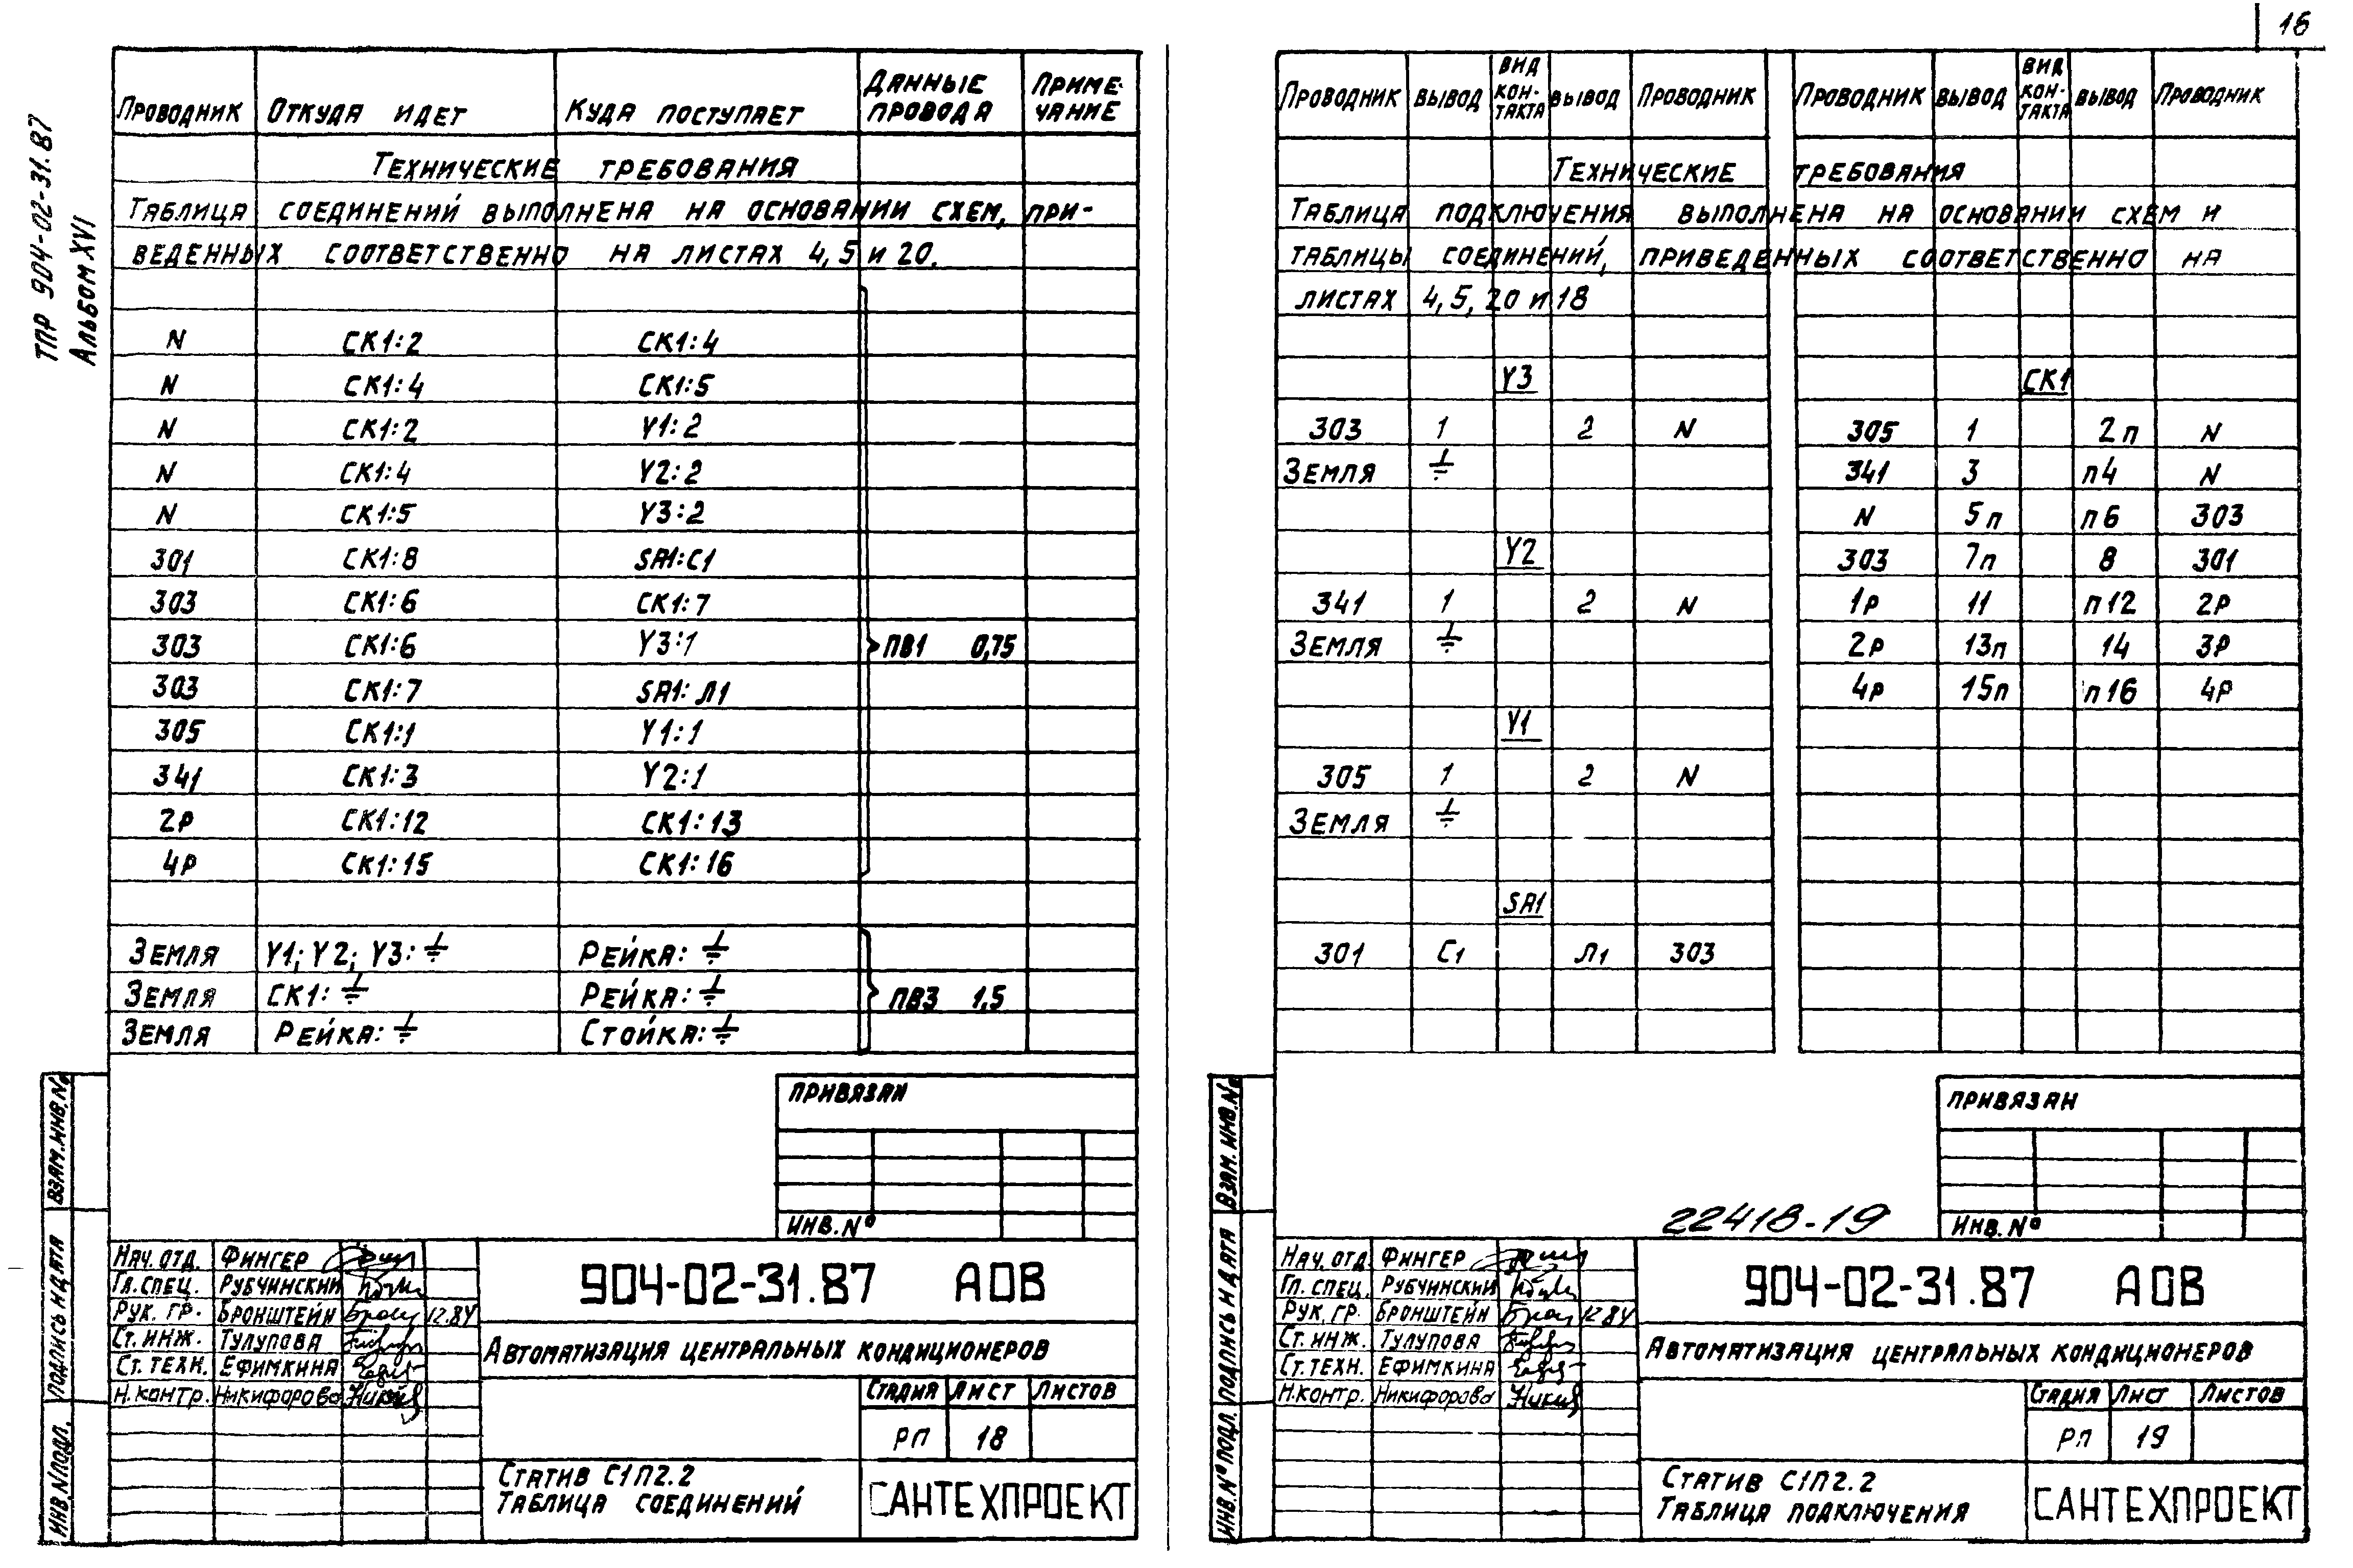 16
ТПР 904-02-31.87
Альбом XVI
Проводник Откуда идет Куда поступает Данные провода Примечание
Технические требования
Таблица соединений выполнена на основании схем, при-
веденных соответственно на листах 4, 5 и 20.
N СК1:2 СК1:4
N СК1:4 СК1:5
N СК1:2 Y1:2
N СК1:4 Y2:2
N СК1:5 Y3:2
301 СК1:8 SA1:C1
303 СК1:6 СК1:7
303 СК1:6 Y3:1 ПВ1 0,75
303 СК1:7 SA1:Л1
305 СК1:1 Y1:1
341 СК1:3 Y2:1
2Р СК1:12 СК1:13
4Р СК1:15 СК1:16
Земля Y1; Y2; Y3:⏚ Рейка:⏚
Земля СК1:⏚ Рейка:⏚ ПВ3 1,5
Земля Рейка:⏚ Стойка:⏚
Привязан
Инв.№
Взам.инв.№
Подпись и дата
Инв.№ подл.
Нач. отд. Фингер
Гл. спец. Рубчинский
Рук. гр. Бронштейн 12.84
Ст. инж. Тулупова
Ст. техн. Ефимкина
Н. контр. Никифорова
904-02-31.87 АОВ
Автоматизация центральных кондиционеров
Стадия Лист Листов
РП 18
Статив С1П2.2
Таблица соединений
САНТЕХПРОЕКТ
Проводник Вывод Вид кон-такта Вывод Проводник Проводник Вывод Вид кон-такта Вывод Проводник
Технические требования
Таблица подключения выполнена на основании схем и
таблицы соединений, приведенных соответственно на
листах 4, 5, 20 и 18
Y3 СК1
303 1 2 N 305 1 2п N
Земля ⏚ 341 3 п4 N
N 5п п6 303
Y2 303 7п 8 301
341 1 2 N 1Р 11 п12 2Р
Земля ⏚ 2Р 13п 14 3Р
4Р 15п п16 4Р
Y1
305 1 2 N
Земля ⏚
SA1
301 С1 Л1 303
Привязан
Инв.№
22418-19
Взам. инв.№
Подпись и дата
Инв.№ подл.
Нач. отд. Фингер
Гл. спец. Рубчинский
Рук. гр. Бронштейн 12.84
Ст. инж. Тулупова
Ст. техн. Ефимкина
Н. контр. Никифорова
904-02-31.87 АОВ
Автоматизация центральных кондиционеров
Стадия Лист Листов
РП 19
Статив С1П2.2
Таблица подключения
САНТЕХПРОЕКТ